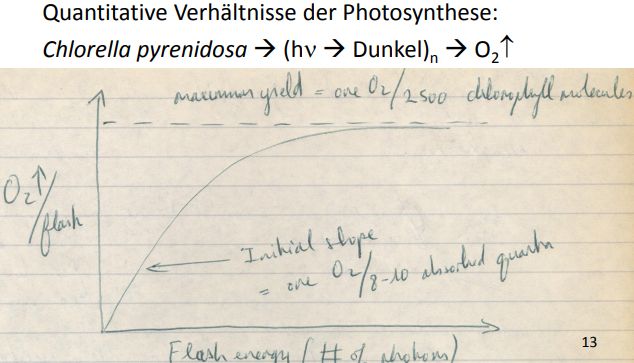 Quantitative Verhältnisse der Photosynthese:
Chlorella pyrenidosa → (hν → Dunkel)n → O2↑
maximum yield = one O2/2500 chlorophyll molecules
O2↑/
/flash
Initial slope
= one O2/8-10 absorbed quanta
Flash energy (# of photons)
13